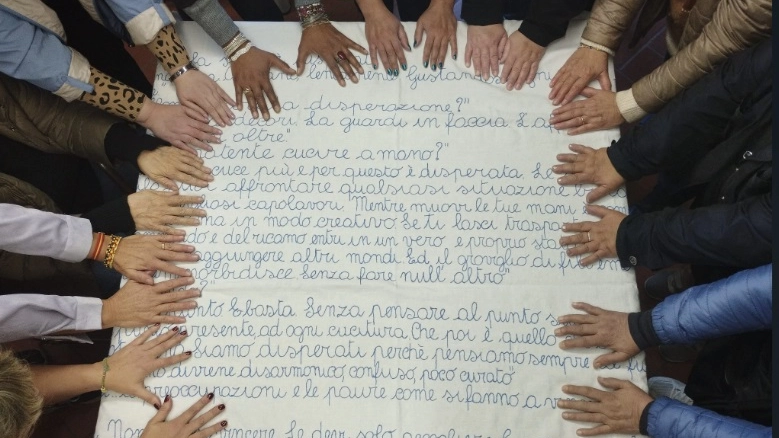 Gustando
a disperazione?"
decori. La guardi in faccia E a
oltre."
potente cucire a mano?"
cuce più e per questo è disperata. Se
affrontare qualsiasi situazione
capolavori. "Mentre muovi le tue mani
ma in modo creativo. Se ti lasci
e del ricamo entri in un vero e proprio
aggiungere altri mondi. Ed il groviglio di
orbidisce senza fare null'altro"
?"
punto E basta. Senza pensare al punto
presente, ad ogni cucitura. Che poi è quello
siamo disperati perché pensiamo sempre
diviene disarmonico, confuso, poco curato"
reoccupazioni e le paure come si fanno a
vincere. Le devi solo accogliere